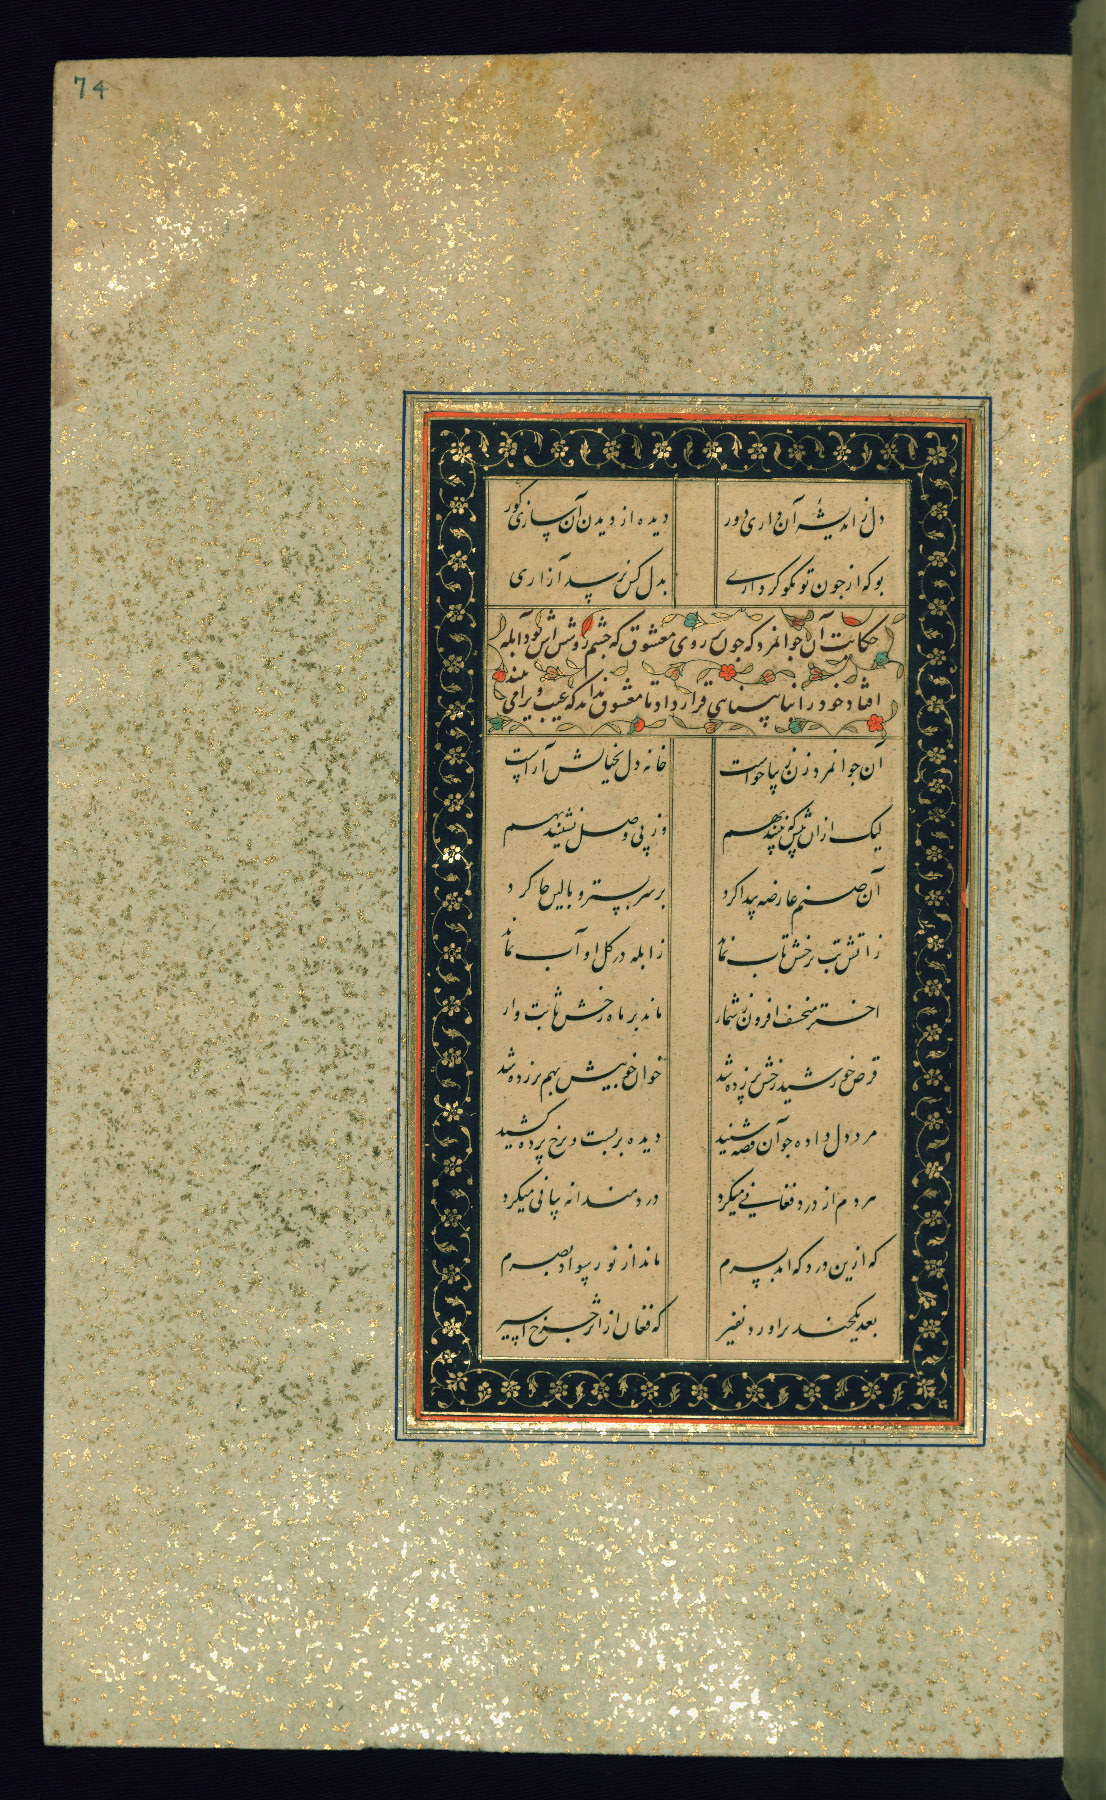 74
دل ز اندیشهٔ آن داری دور دیده از دیدن آن سازی کور
بو که از چون تو نکو کرداری بدل کس نرسد آزاری
حکایت آن جوانمرد که چون روی معشوق که چشم روشنش بود آبله
افتاد خود را نابینایی قرار داد تا معشوق نداند که عیب ویرا می بیند
آن جوانمرد زنی زیبا خواست خانه دل بخیالش آراست
لیک ازان پیش که بینند بهم وز پی وصل نشینند بهم
آن صنم عارضه پیدا کرد بر سر بستر و بالین جا کرد
ز آتش تب برخش تاب نماند ز ابله در گل او آب نماند
اختر منخسف افزون ز شمار ماند بر ماه رخش ثابت وار
قرص خورشید رخش زده شد خوان خوبیش بهم بر زده شد
مرد دل داده چو آن قصه شنید دیده بر بست و برخ پرده کشید
مردم از درد فغانی میکرد دردمندانه بیانی میکرد
که ازین درد که آمد بسرم ماند از نور سواد بصرم
بعد یکچند براورد نفیر که فغان از اثر چرخ اسیر